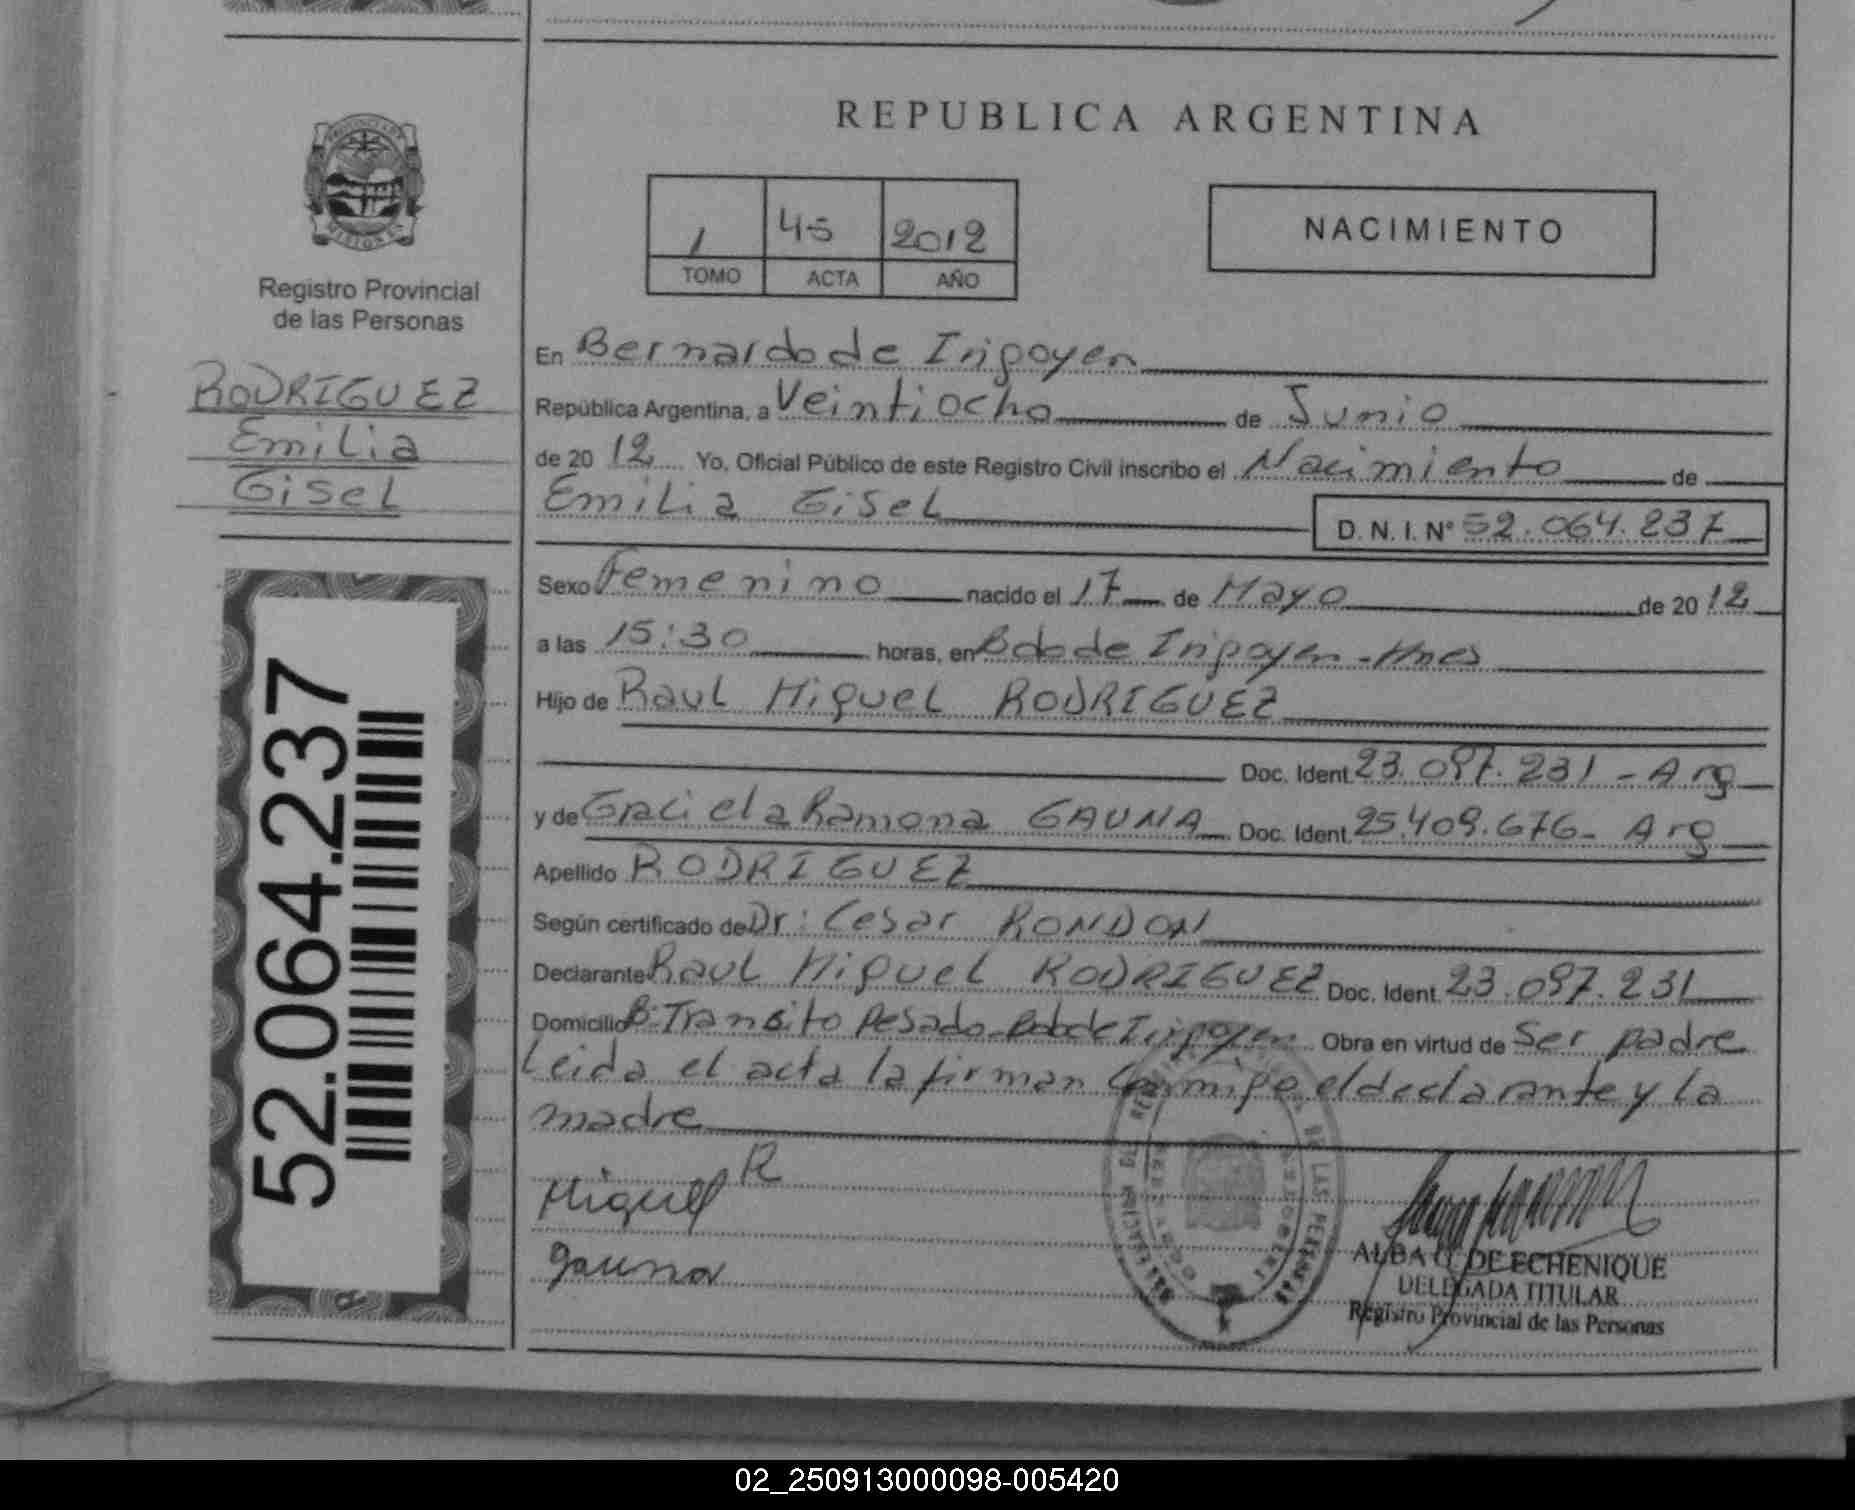 REPUBLICA ARGENTINA
PROVINCIA DE
MISIONES
Registro Provincial
de las Personas
RODRIGUEZ
Emilia
Gisel
52.064.237
1 45 2012
TOMO ACTA AÑO
NACIMIENTO
En Bernardo de Irigoyen
República Argentina, a Veintiocho de Junio
de 2012 Yo, Oficial Público de este Registro Civil inscribo el Nacimiento de
Emilia Gisel D. N. I. N° 52.064.237
Sexo Femenino nacido el 17 de Mayo de 2012
a las 15:30 horas, en Bdo de Irigoyen - Mnes
Hijo de Raul Miguel RODRIGUEZ
Doc. Ident. 23.097.231 - Arg
y de Graciela Ramona GAUNA Doc. Ident. 25.409.676- Arg
Apellido RODRIGUEZ
Según certificado de Dr: Cesar RONDON
Declarante Raul Miguel RODRIGUEZ Doc. Ident. 23.097.231
Domicilio B: Transito Pesado - Bdo de Irigoyen Obra en virtud de Ser padre
Leida el acta la firman Conmigo el declarante y la
madre
Miguel R
gauna
DE LAS PERSONAS
ALBA G. DE ECHENIQUE
DELEGADA TITULAR
Registro Provincial de las Personas
02_250913000098-005420